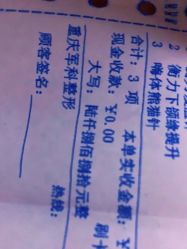 2 衡力下颌缘提升
3 嗨体熊猫针
合计: 3 项 本单实收金额: ¥
现金收款: ¥0.00 刷卡
大写: 陆仟捌佰捌拾元整
重庆军科整形 热线:
顾客签名: